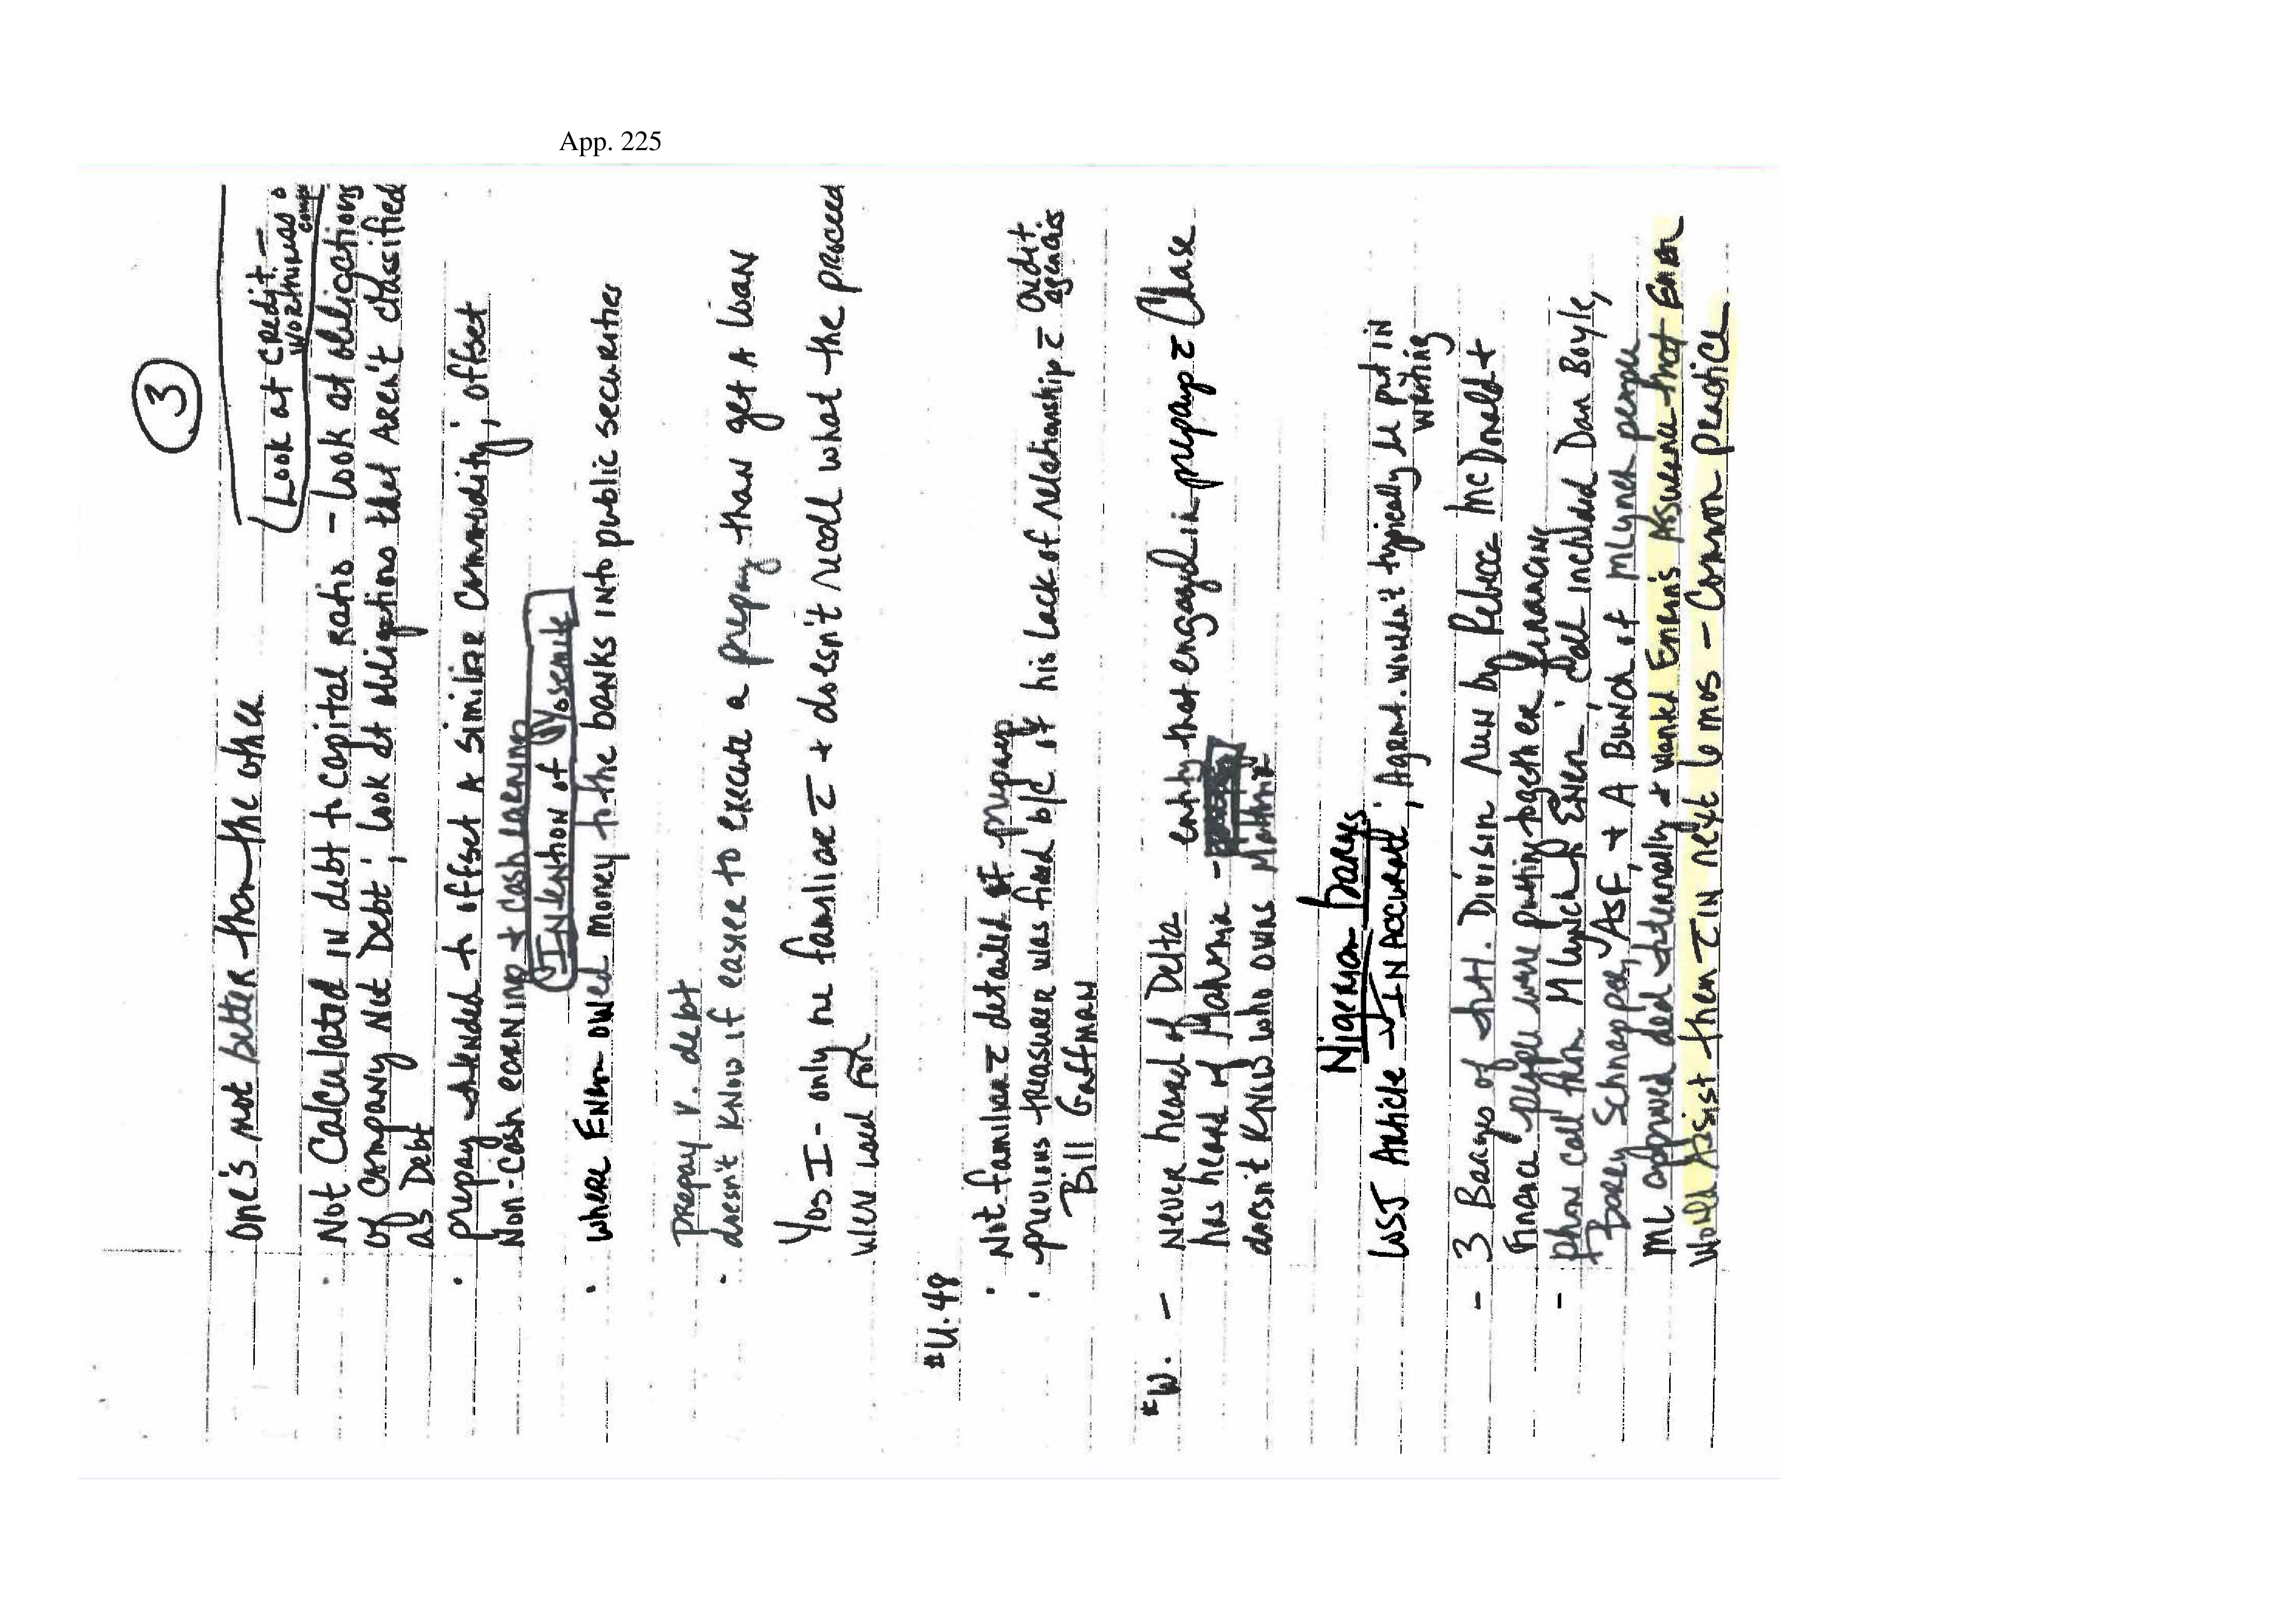 App. 225
3
Look at credit-
worthiness
comp
one's not better than the other
Not Calculated in debt to capital ratio - Look at obligations
of company Not Debt; Look at obligations that Aren't classified
as Debt
prepay intended to offset A similar commodity; offset
Non-cash earnings & cash earnings
Intention of Yosemite
where Enron owed money to the banks into public securities
prepay v. debt
doesn't know if easier to execute a prepay than get a loan
Yos I - only one familiar c̄ & doesn't recall what the proceed
were used for
#U. 48
Not familiar c̄ details of prepays
previous treasurer was fired b/c of his lack of relationship c̄ credit
agencies
Bill Gaffman
*W. - never heard of Delta entity that engaged in prepay c̄ Chase
has heard of Mahonia -
doesn't know who owns Mahonia
Nigerian barges
WSJ Article - INACCURATE; Agrmt. wouldn't typically be put in
writing
- 3 Barges of Int. Division run by Rebecca McDonald &
finance people were putting together financing
- phone call from M Lynch & Enron; call included Dan Boyle,
Schnapper, ASF, & A Bunch of M Lynch people
ML approved deal internally & wanted Enron's Assurance that Enron
Would Assist them c̄ IN next 6 mos - Common practice